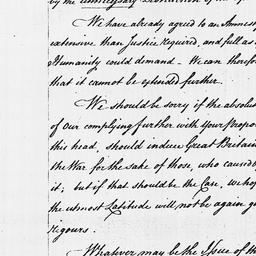 by the unnecessary
We have already agreed to an Amnesty
extensive than Justice required, and full as
Humanity could demand – We can therefore
that it cannot be extended further.
We should be sorry if the absolute
of Our complying further with Your Propo
this head, should induce Great Britain
the War for the sake of those, who caused
it; but if that should be the Case, we hope
the utmost Latitude will not be again g
rigours.
Whatever may be the Issue of th